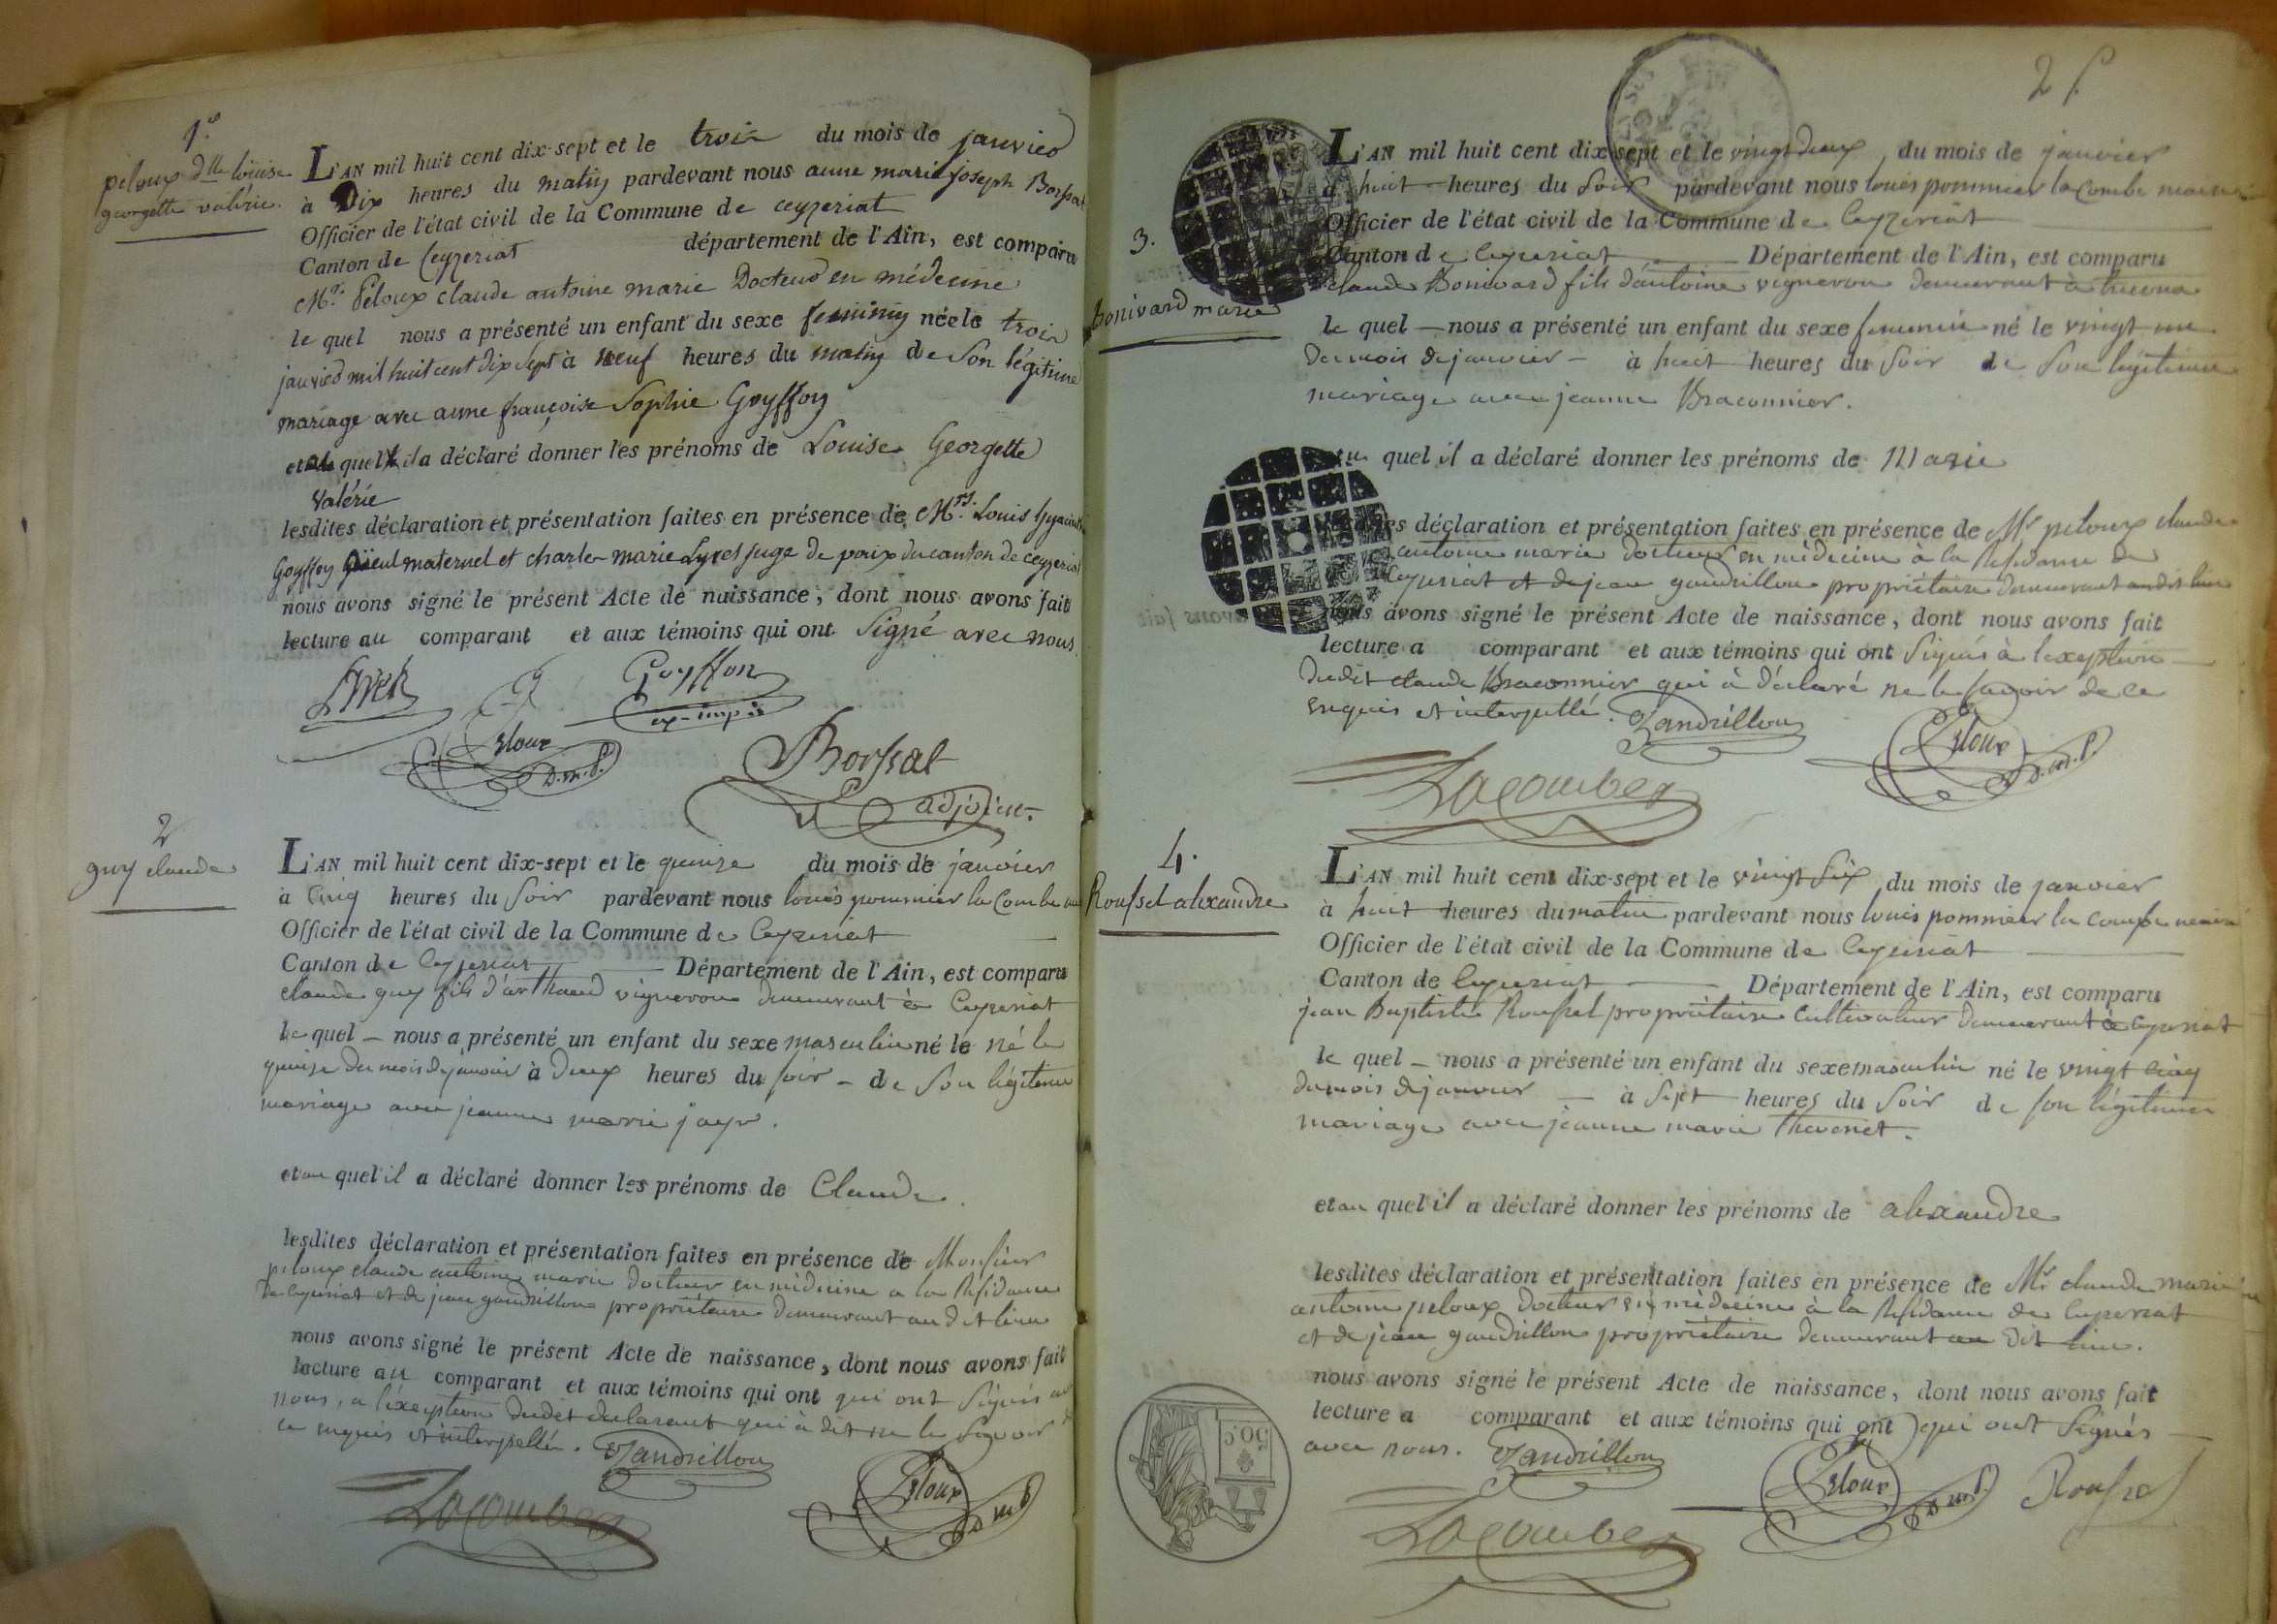 1.º
peloux dlle louise
georgette valérie.
L'AN mil huit cent dix-sept et le trois du mois de janvier
à Dix heures du matin pardevant nous anne marie joseph Borssat
Officier de l'état civil de la Commune de ceyzeriat
Canton de Ceyzeriat département de l'Ain, est comparu
Mr. Peloux claude antoine marie Docteur en médecine
le quel nous a présenté un enfant du sexe feminin née le trois
janvier mil huit cent dix sept à neuf heures du matin de Son légitime
mariage avec anne françoise Sophie Goyffon
et quel il a déclaré donner les prénoms de Louise Georgette
Valérie
lesdites déclaration et présentation faites en présence de Mrs. Louis hyacinthe
Goyffon ayeul maternel et charles marie Lyvet juge de paix du canton de ceyzeriat
nous avons signé le présent Acte de naissance, dont nous avons fait
lecture au comparant et aux témoins qui ont Signé avec nous
Lyvet Goyffon
Peloux D.m.P.
Borssat
adjoint.
2
guy claude
L'AN mil huit cent dix-sept et le quinze du mois de janvier
à Cinq heures du Soir pardevant nous louis pommier la Combe
Officier de l'état civil de la Commune de Ceyzeriat
Canton de Ceyzeriat Département de l'Ain, est comparu
claude guy fils d'arthaud vigneron demeurant à Ceyzeriat
le quel nous a présenté un enfant du sexe masculin né le né le
quinze du mois de janvier à Deux heures du soir de Son légitime
mariage avec jeanne marie jayr.
et au quel il a déclaré donner les prénoms de Claude.
lesdites déclaration et présentation faites en présence de Monsieur
peloux claude antoine marie docteur en médecine a la Residance
de Ceyzeriat et de jean gandrillon propriétaire demeurant au dit lieu
nous avons signé le présent Acte de naissance, dont nous avons fait
lecture au comparant et aux témoins qui ont qui ont Signés
nous, a l'exeption dudit declarant qui à dit ne le Savoir
ce enquis et interpellé. Gandrillon
Lacombe Peloux D m P
2
3.
bonivard marie
L'AN mil huit cent dix sept et le vingt deux du mois de janvier
à huit heures du Soir pardevant nous louis pommier la Combe maire
Officier de l'état civil de la Commune de Ceyzeriat
Canton de Ceyzeriat Département de l'Ain, est comparu
claude Bonivard fils d'antoine vigneron demeurant à
le quel nous a présenté un enfant du sexe feminin né le vingt un
du mois de janvier à huit heures du Soir de Son légitime
mariage avec jeanne Braconnier.
quel il a déclaré donner les prénoms de Marie
déclaration et présentation faites en présence de Mr peloux claude
antoine marie docteur en médecine à la Residance de
Ceyzeriat et de jean gandrillon propriétaire demeurant audit lieu
nous avons signé le présent Acte de naissance, dont nous avons fait
lecture a comparant et aux témoins qui ont Signés à l'exeption
dudit claude Braconnier qui à déclaré ne le savoir de ce
enquis et interpellé. Gandrillon
Lacombe Peloux D.m.P.
4.
Roussel alexandre
L'AN mil huit cent dix-sept et le vingt Six du mois de janvier
à huit heures du matin pardevant nous louis pommier la combe maire
Officier de l'état civil de la Commune de Ceyzeriat
Canton de Ceyzeriat Département de l'Ain, est comparu
jean Baptiste Roussel propriétaire Cultivateur demeurant à Ceyzeriat
le quel nous a présenté un enfant du sexe masculin né le vingt cinq
du mois de janvier à Sept heures du Soir de son légitime
mariage avec jeanne marie thevenet.
et au quel il a déclaré donner les prénoms de alexandre
lesdites déclaration et présentation faites en présence de Mr claude marie
antoine peloux docteur en médecine à la Residance de Ceyzeriat
et de jean gandrillon propriétaire demeurant au dit lieu.
nous avons signé le présent Acte de naissance, dont nous avons fait
lecture a comparant et aux témoins qui ont qui ont Signés
avec nous. Gandrillon
Lacombe Peloux D m P. Roussel
50.c